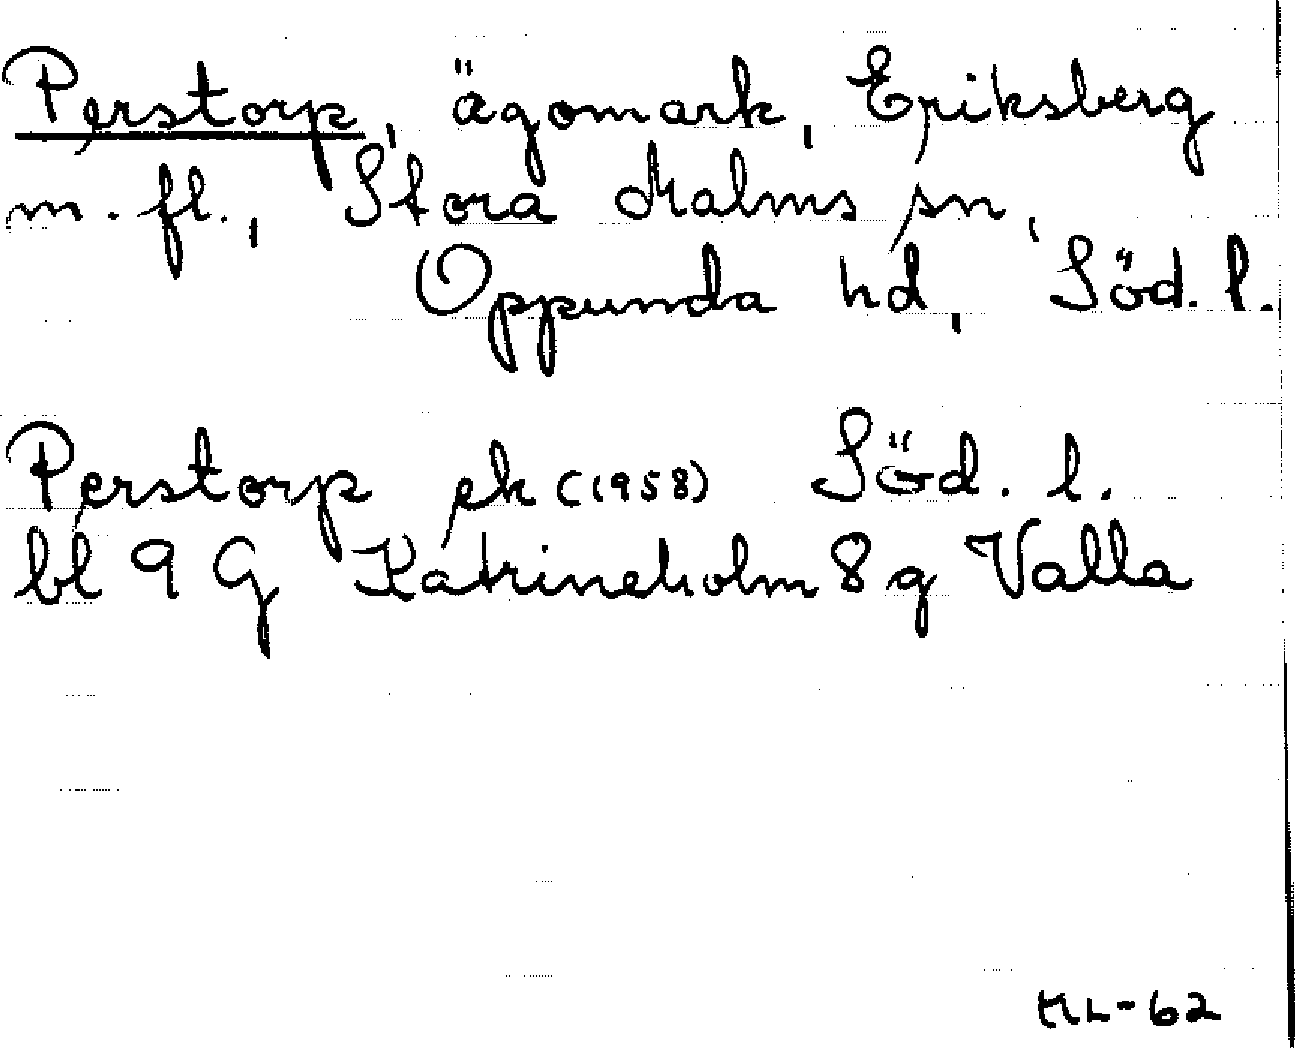 Perstorp, ägomark, Eriksberg
m. fl., Stora Malms sn,
Oppunda hd, Söd. l.
Perstorp ek (1958) Söd. l.
bl 9 G Katrineholm 8 g Valla
ML-62